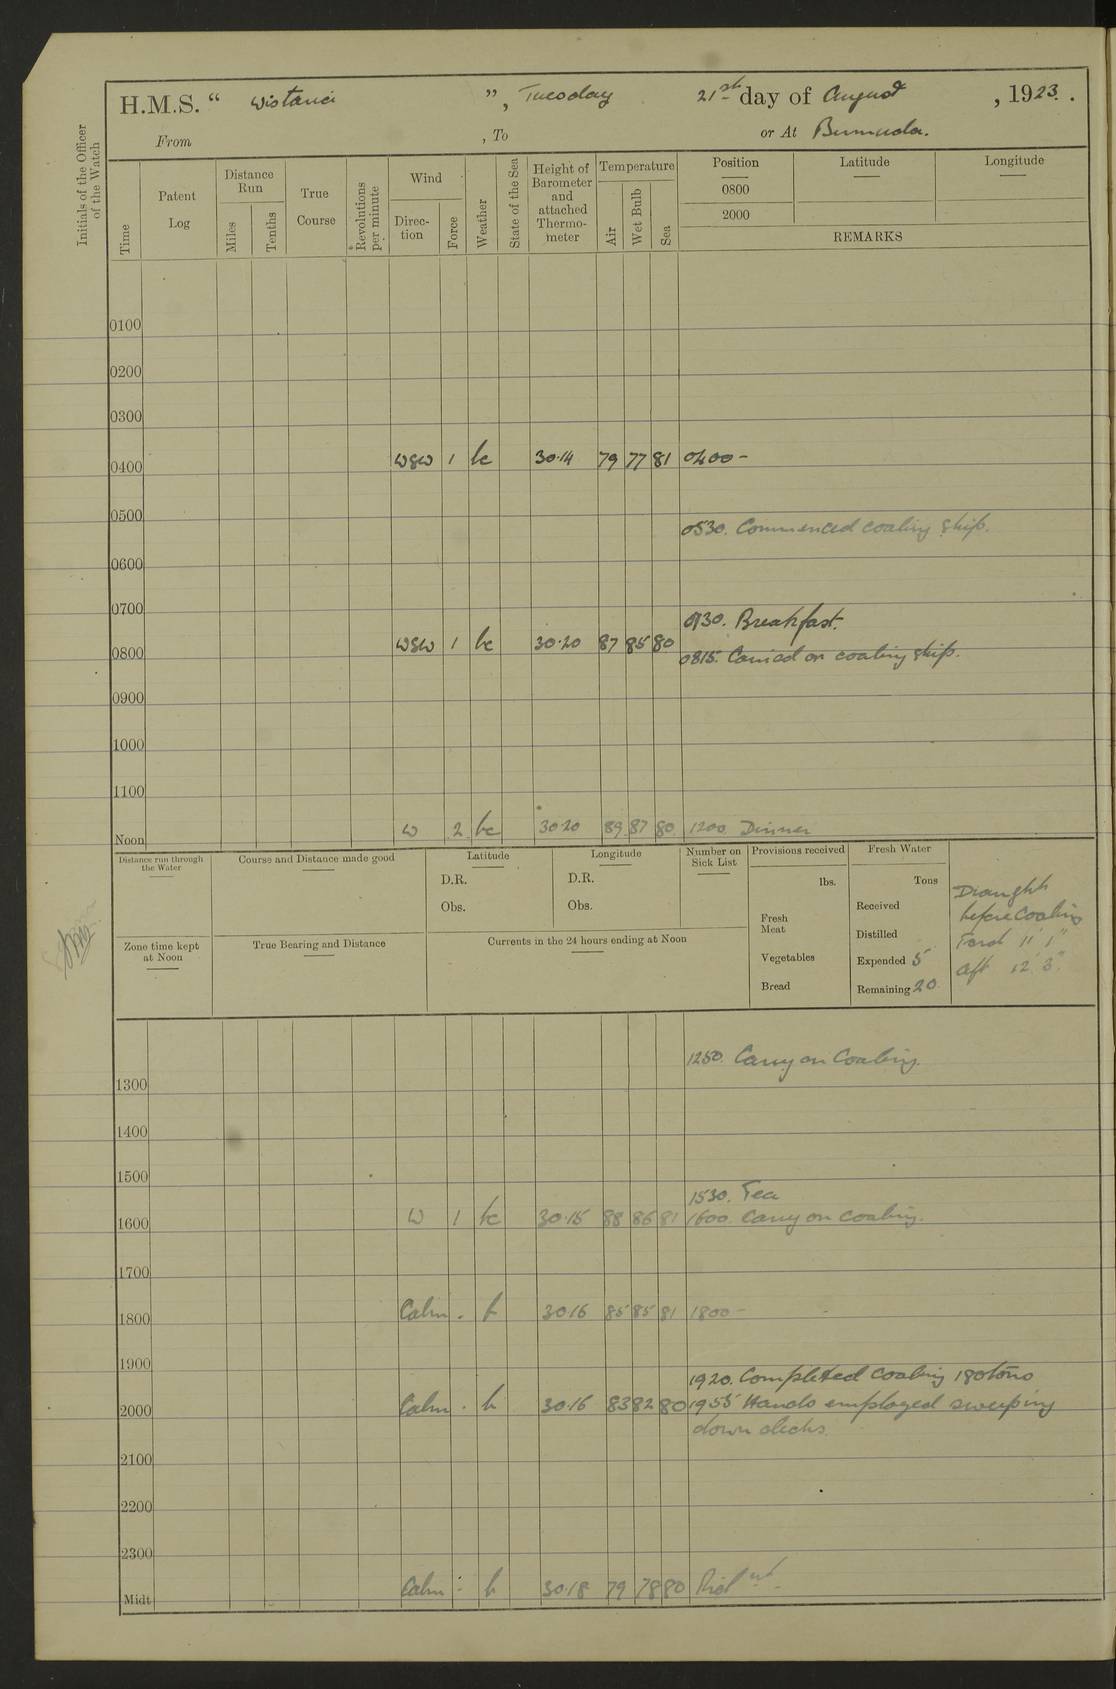 H.M.S. “ Wistaria ”, Tuesday 21st day of August, 1923.
From , To or At Bermuda.
Initials of the Officer of the Watch
Time
Patent Log
Distance Run
Miles
Tenths
True Course
Revolutions per minute
Wind
Direc-tion
Force
Weather
State of the Sea
Height of Barometer and attached Thermo-meter
Temperature
Air
Wet Bulb
Sea
Position
0800
2000
Latitude
Longitude
REMARKS
0100
0200
0300
0400 WSW 1 bc 30.14 79 77 81 0400 -
0500
0530. Commenced coaling ship.
0600
0700
0730. Breakfast.
0800 WSW 1 bc 30.20 87 85 80
0815. Carried on coaling ship.
0900
1000
1100
Noon W 2 bc 30.20 89 87 80 1200 Dinner
Distance run through the Water
Course and Distance made good
Latitude
D.R.
Obs.
Longitude
D.R.
Obs.
Number on Sick List
Provisions received
lbs.
Fresh Meat
Vegetables
Bread
Fresh Water
Tons
Received
Distilled
Expended 5
Remaining 20
Draught
before coaling
Ford 11' 1"
Aft 12' 3"
Zone time kept at Noon
True Bearing and Distance
Currents in the 24 hours ending at Noon
1250. Carry on Coaling.
1300
1400
1500
1530. Tea
1600 W 1 bc 30.15 88 86 81 1600. Carry on coaling.
1700
1800 Calm - b 30.16 85 85 81 1800 -
1900
1920. Completed coaling 180 tons
2000 Calm - b 30.16 83 82 80 1955 Hands employed sweeping
down decks.
2100
2200
2300
Midt Calm - b 30.18 79 78 80